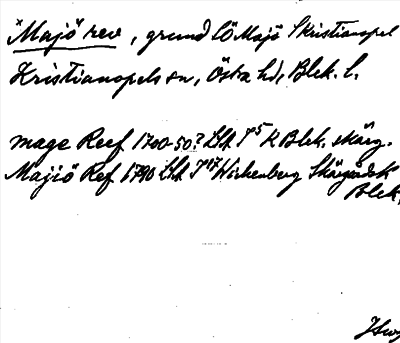 "Majö rev, grund lö Majö Skristianopel
Kristianopels sn, Östra hd, Blek. l.
mage Reef 1700-50? LSA T⁵ K Blek. skärg.
Majiö Ref 1790 LSA T¹⁷ Wirkenberg Skärgårdsk
Blek.